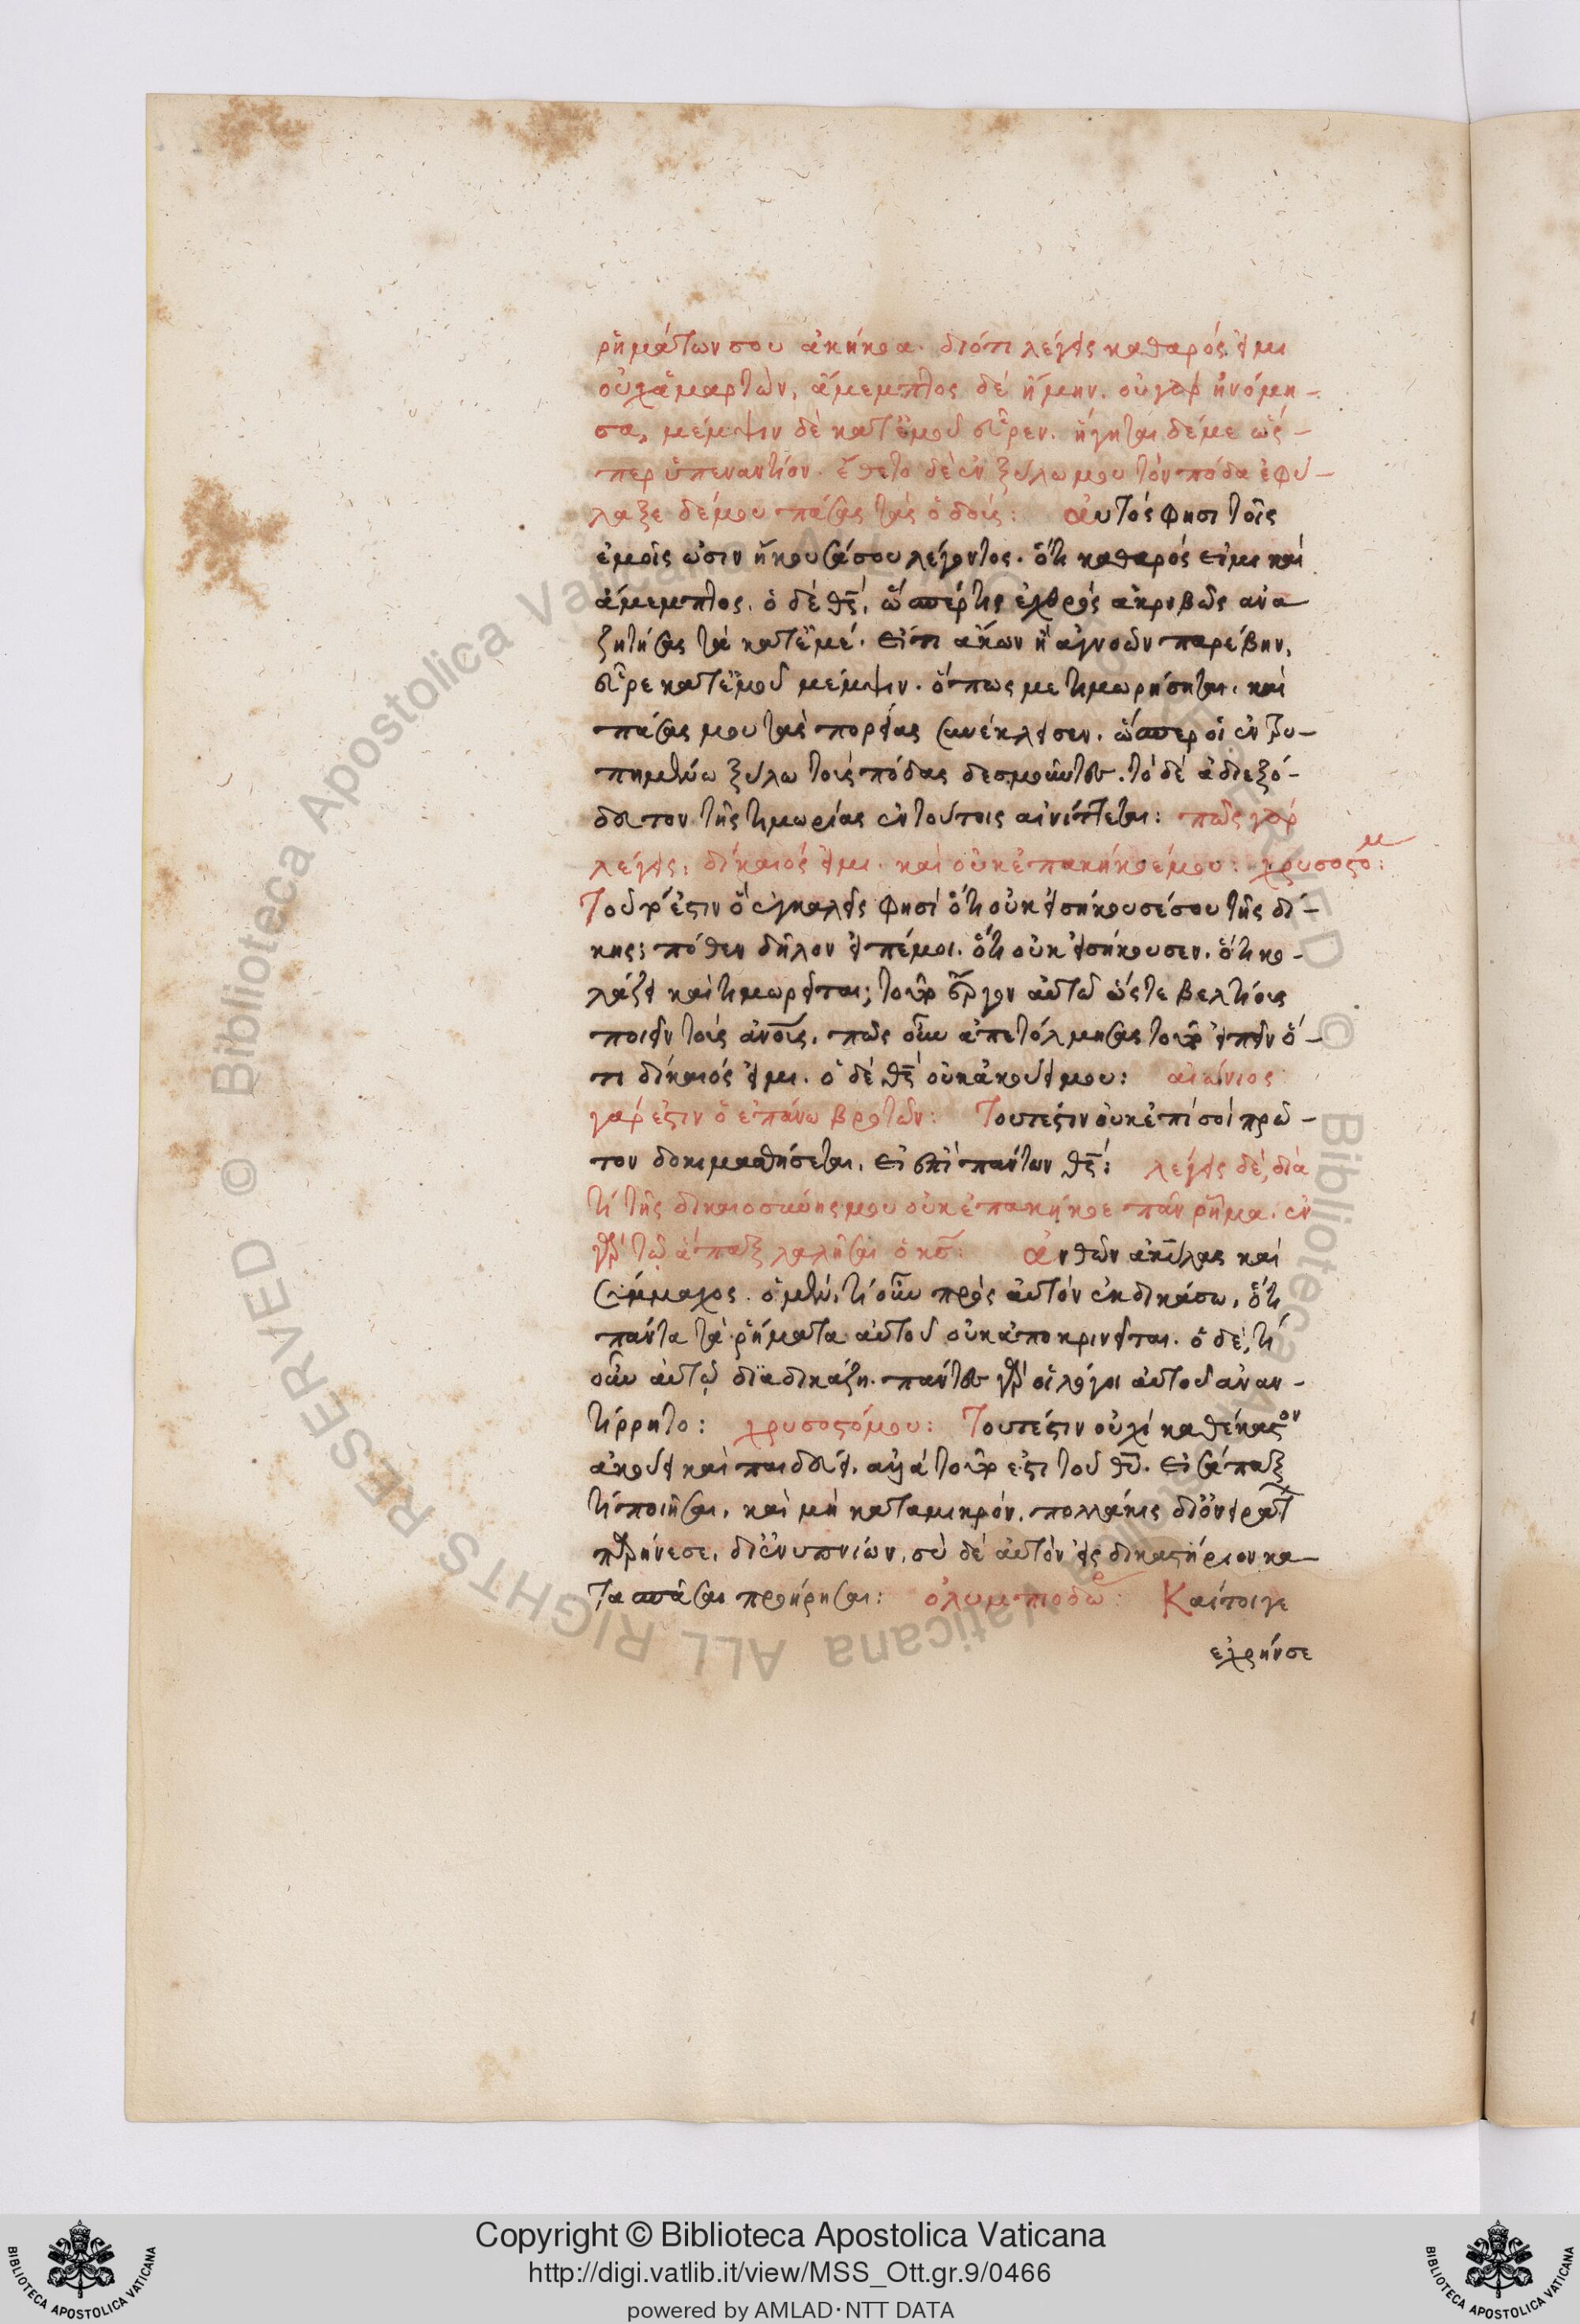 ῥημάτων σου ἀκήκοα. διότι λέγεις καθαρός εἰμι
οὐχ ἁμαρτὼν, ἄμεμπτος δέ ἤμην. οὐ γαρ ἠνόμη-
σα, μέμψιν δὲ κατ ἐμοῦ εὗρεν. ἥγηται δέ με ὥς-
περ ὑπεναντίον. ἔθετο δὲ ἐν ξύλω μου τὸν πόδα ἐφύ-
λαξε δέ μου πάσας τὰς ὁδούς: αὐτός φησι τοῖς
ἐμοῖς ὠσιν ἤκουσά σου λέγοντος. ὅτι καθαρός εἰμι καὶ
ἄμεμπτος. ὁ δέ θς, ὥσπέρ τις ἐχθρὸς ἀκριβῶς ἀνα
ζητήσας τὰ κατ ἐμέ. εἴ τι ἄκων ἢ ἀγνοῶν παρέβην,
εὗρε κατ ἐμοῦ μέμψιν. ὅπως με τιμωρήσηται. καὶ
πάσας μου τὰς πορείας συνέκλεισεν. ὥσπερ οἱ ἐν τρυ-
πημένω ξύλω τοὺς πόδας δεσμοῦντες. τὸ δὲ ἀδιεξό-
δευτον τῆς τιμωρίας ἐν τούτοις αἰνίττεται: πῶς γὰρ
λέγεις; δίκαιός εἰμι. καὶ οὐκ ἐπακήκοέ μου: χρυσοστομ:
Τοῦτό ἐστιν ὃ ἐγκαλεῖς φησὶ ὅτι οὐκ εἰσήκουσέ σου τῆς δί-
κης; πόθεν δῆλον εἰπέ μοι. ὅτι οὐκ εἰσήκουσεν. ὅτι κο-
λάζει καὶ τιμωρεῖται; τοῦτο ἔργον αὐτοῦ ὥστε βελτίους
ποιεῖν τοὺς ἀνους. πῶς οὖν ἀπετόλμησας τοῦτο εἰπεῖν ὅ-
τι δίκαιός εἰμι. ὁ δέ θς οὐκ ἀκούει μου: αἰώνιος
γάρ ἐστιν ὁ ἐπάνω βροτῶν: Τουτέστιν οὐκ ἐπί σοὶ πρῶ-
τον δοκιμασθήσεται. εἰ ἐπὶ πάντων θς: λέγεις δὲ, διὰ
τί τῆς δικαιοσύνης μου οὐκ ἐπακήκοε πᾶν ῥῆμα. ἐν
γὰρ τῷ ἅπαξ λαλῆσαι ὁ κς: ἀνθῶν ἀκύλας καὶ
Σύμμαχος. ὁ μὲν, τί οὖν πρὸς αὐτὸν ἐκδικάσω, ὅτι
πάντα τὰ ῥήματα αὐτοῦ οὐκ ἀποκρινεῖται. ὁ δὲ, τί
οὖν αὐτῷ διαδικάζη. πάντες γὰρ οἱ λόγοι αὐτοῦ ἀναν-
τίρρητο: χρυσοστόμου: Τουτέστιν οὐχὶ καθ ἕκαστον
ἀκούει καὶ παιδεύει. ἀλλὰ τοῦτο ἐστι τοῦ θυ. εἰσάπαξ
τί ποιῆσαι, καὶ μὴ κατα μικρόν. πολλάκις δι ὀνειρατ
παρήνεσε, δι ἐνυπνίων. σὺ δὲ αὐτὸν εἰς δικαστήριον κα-
τασπάσαι προήρησαι: ὀλυμπιοδώρ: Καίτοιγε
ἐχρῆν σε
Copyright © Biblioteca Apostolica Vaticana
http://digi.vatlib.it/view/MSS_Ott.gr.9/0466
powered by AMLAD · NTT DATA
BIBLIOTECA APOSTOLICA VATICANA
BIBLIOTECA APOSTOLICA VATICANA
© Biblioteca Apostolica Vaticana ALL RIGHTS RESERVED © Biblioteca Apostolica Vaticana ALL RIGHTS RESERVED